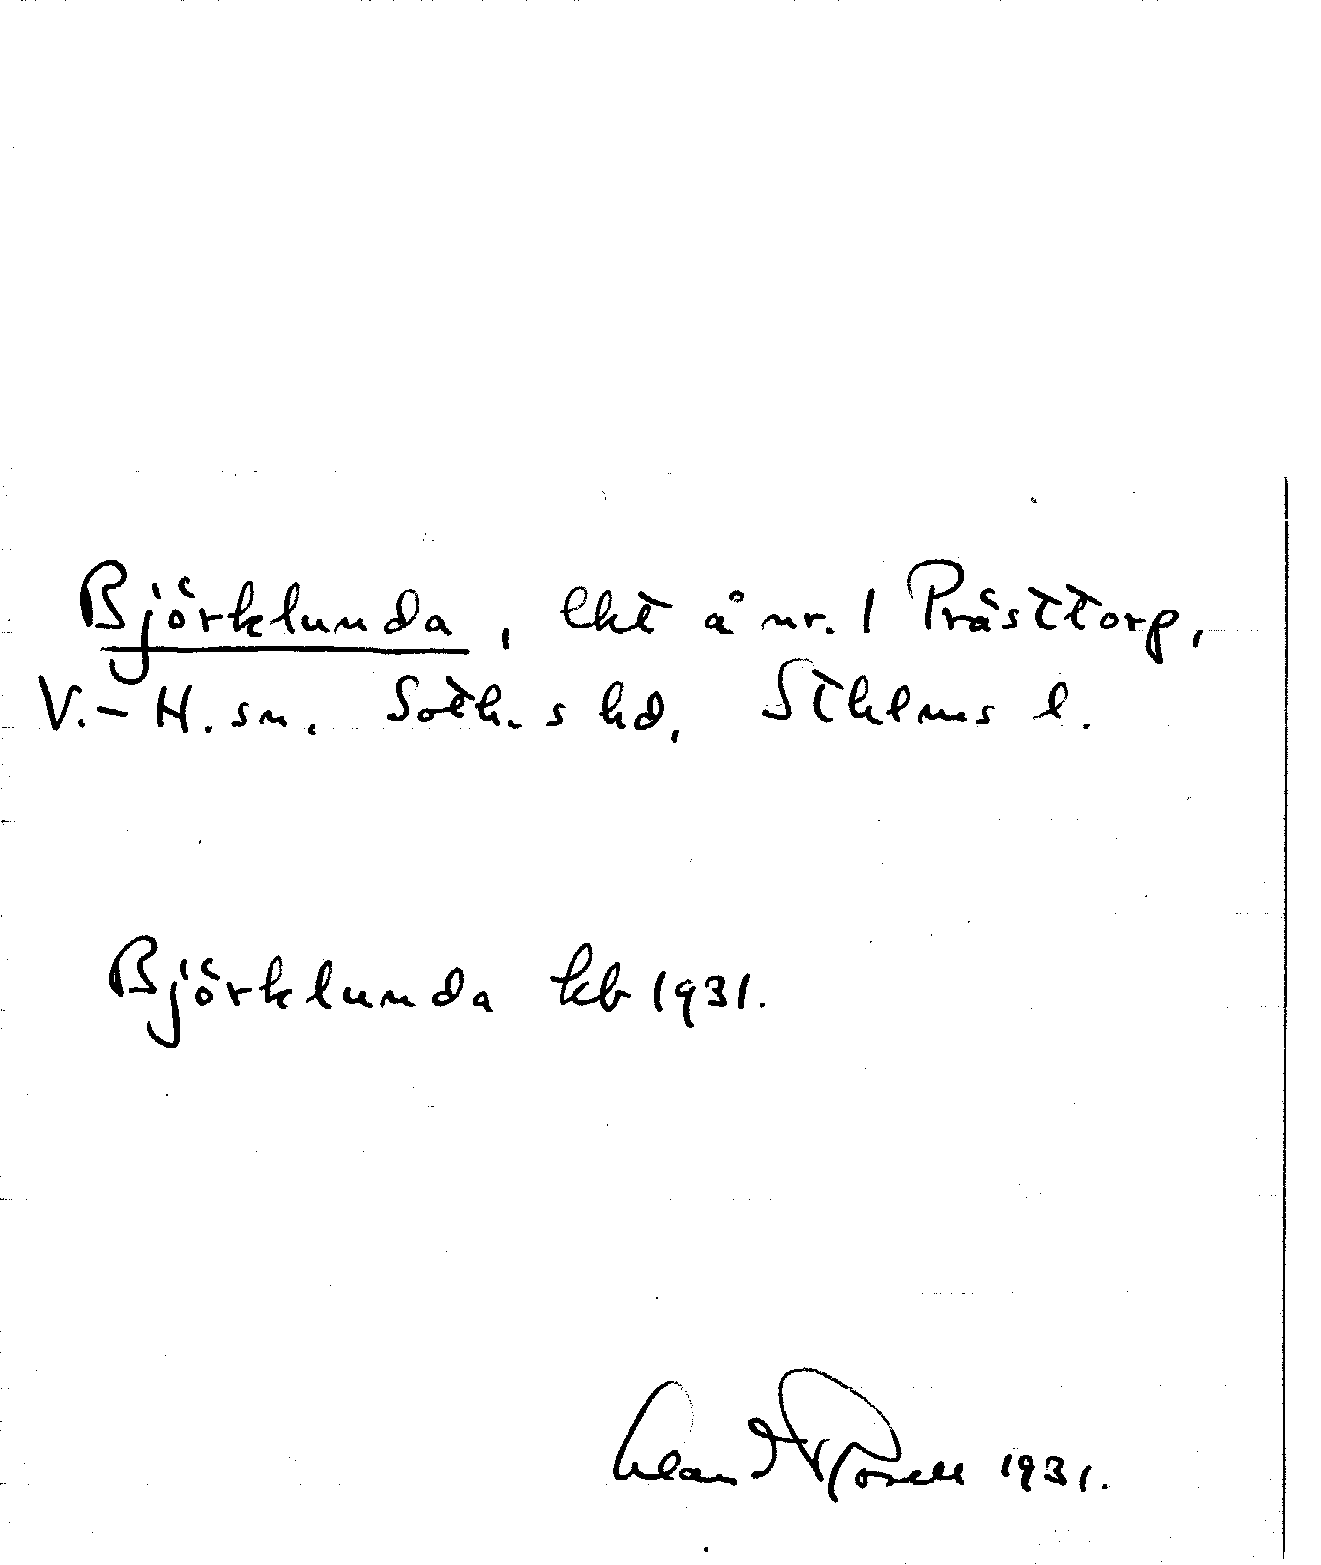 Björklunda, lht å nr. 1 Prästtorp,
V.-H. sn. Soth. s hd, Sthlms l.
Björklunda kb 1931.
1931.